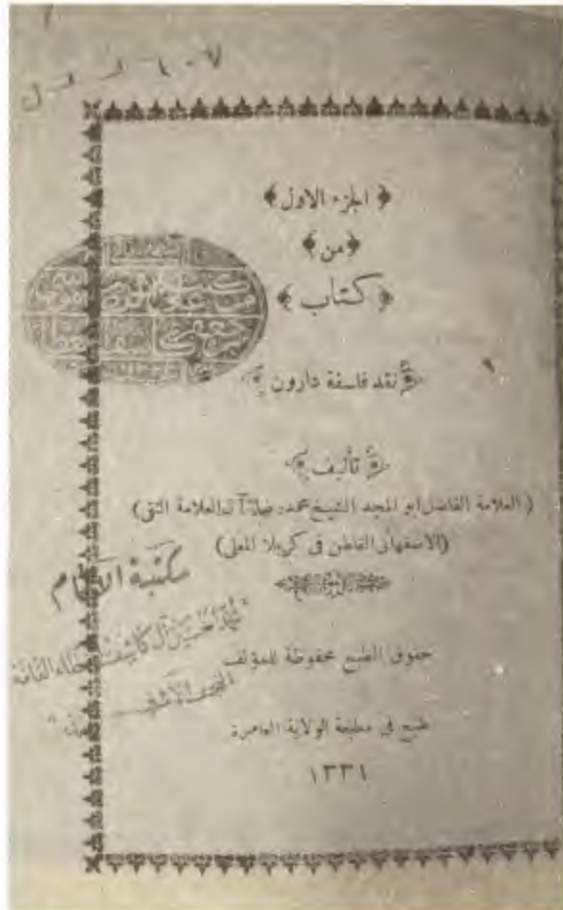 ﴿ الجزء الاول ﴾
﴿ من ﴾
﴿ كتاب ﴾
﴿ نقد فلسفة دارون ﴾
٩
﴿ تأليف ﴾
( العلامة الفاضل ابو المجد الشيخ محمد رضا آل العلامة التقى )
(الاصفهانى القاطن فى كربلا المعلى)
مكتبة الامام
محمد الحسين آل كاشف الغطاء العامة
النجف الاشرف
حقوق الطبع محفوظة للمؤلف
طبع فى مطبعة الولاية العامرة
١٣٣١